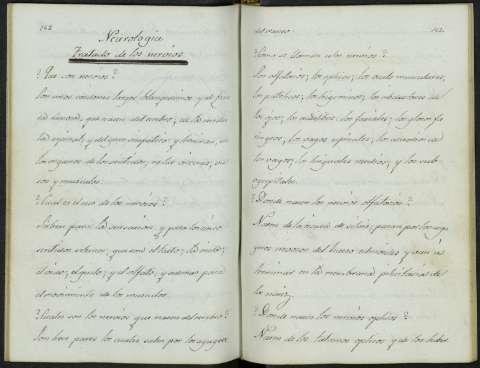 142
Neurologia
Tratado de los nervios.
¿Que son nervios?
Son unos cordones largos blanquecinos y de
que nacen del cerebro, de la medu
la espinal, y del gran simpatico y terminan, en
los organos de los sentidos, en las visceras,
y musculos.
¿Cual es el uso de los nervios?
Sirben para la sensacion, y para los cinco
sentidos externos, que son el tacto, la vista,
el oido, el gusto, y el olfato, y ademas para
el movimiento de los musculos.
¿Cuales son los nervios que nacen del cerebro?
Son doce pares los cuales salen por los agugeros
del craneo.
¿Como se llaman estos nervios?
Los olfatorios, los opticos, los oculo musculares,
los pateticos, los trigeminos, los abductores de
los ojos, los auditibos, los faciales, los gloso fa
ringeos, los vagos espinales, los
los vagos, los linguales medios, y los sub-
ocipitales.
¿Donde nacen los nervios olfatorios?
Nacen de la cisura de silvio, pasan por los agu
geros mocosos del hueso etmoides y van á
terminar en la membrana pituitaria de
la nariz.
¿Donde nacen los nervios opticos?
Nacen de los talamos opticos y de los tuber